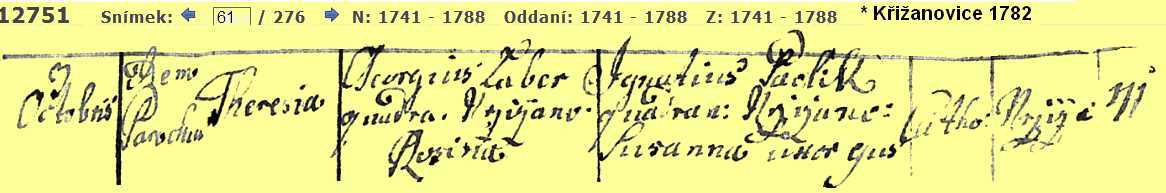 12751 Snímek: 61 / 276 N: 1741 - 1788 Oddaní: 1741 - 1788 Z: 1741 - 1788 * Křižanovice 1782
3 Octobris
Idem Parochus
Theresia
Georgius Taber
quadra. Krzizano:
Rosina
Ignatius Padlik
quadran: Krzizano:
Susanna uxor ejus
Catho: